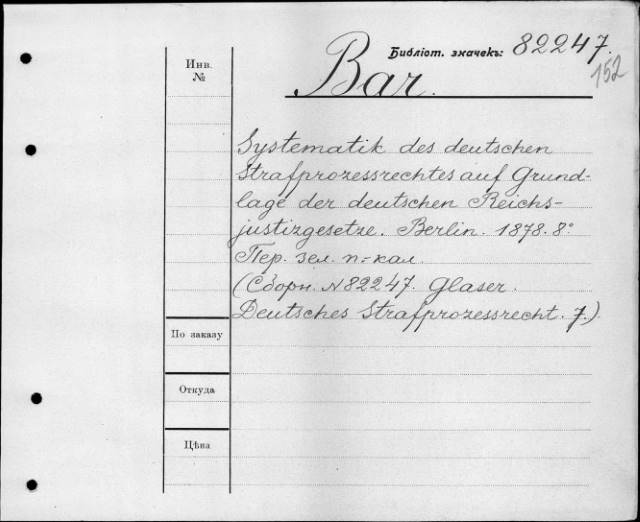 Библіот. значекъ: 82247.
152
Инв.
№
Bar.
Systematik des deutschen
Strafprozessrechtes auf Grund-
lage der deutschen Reichs-
justizgesetze. Berlin. 1878. 8°
Пер. зел. п.-кал.
(Сборн. N 82247. Glaser.
Deutsches Strafprozessrecht. 7.)
По заказу
Откуда
Цѣна